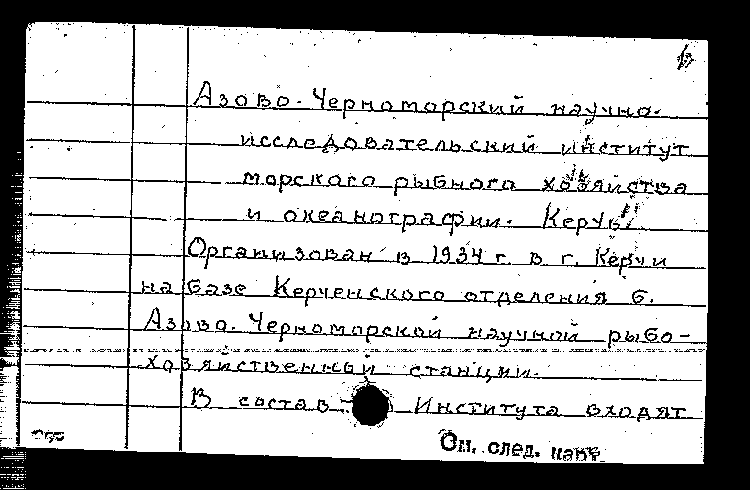 Азово-Черноморский научно-
исследовательский институт
морского рыбного хозяйства
и океанографии. Керчь.
Организован в 1934 г. в г. Керчи
на базе Керченского отделения б.
Азово-Черноморской научной рыбо-
хозяйственной станции.
В состав Института входят
См. след. карт.